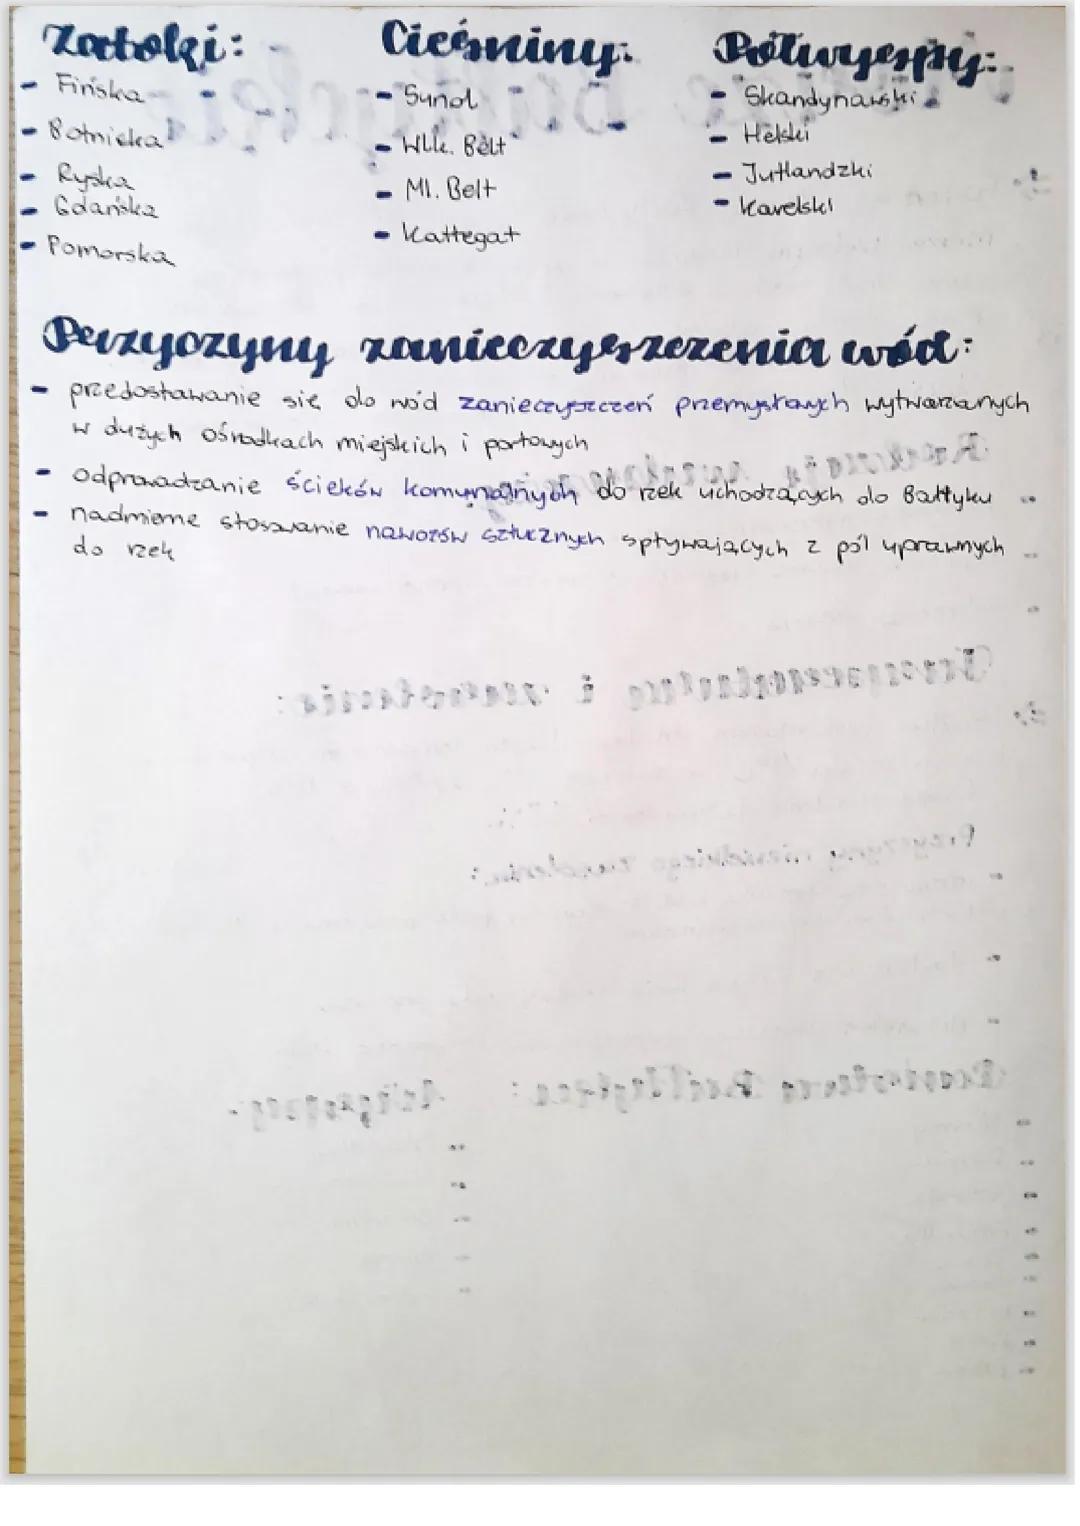 Zatoki:
- Fińska
- Botnicka
- Ryska
- Gdańska
- Pomorska
Cieśniny:
- Sund
- Wlk. Bełt
- Mł. Bełt
- Kattegat
Półwyspy:
- Skandynawski
- Helski
- Jutlandzki
- Karelski
Przyczyny zanieczyszczenia wód:
- przedostawanie się do wód zanieczyszczeń przemysłowych wytwarzanych
w dużych ośrodkach miejskich i portowych
- odprowadzanie ścieków komunalnych do rzek uchodzących do Bałtyku
- nadmierne stosowanie nawozów sztucznych spływających z pól uprawnych
do rzek